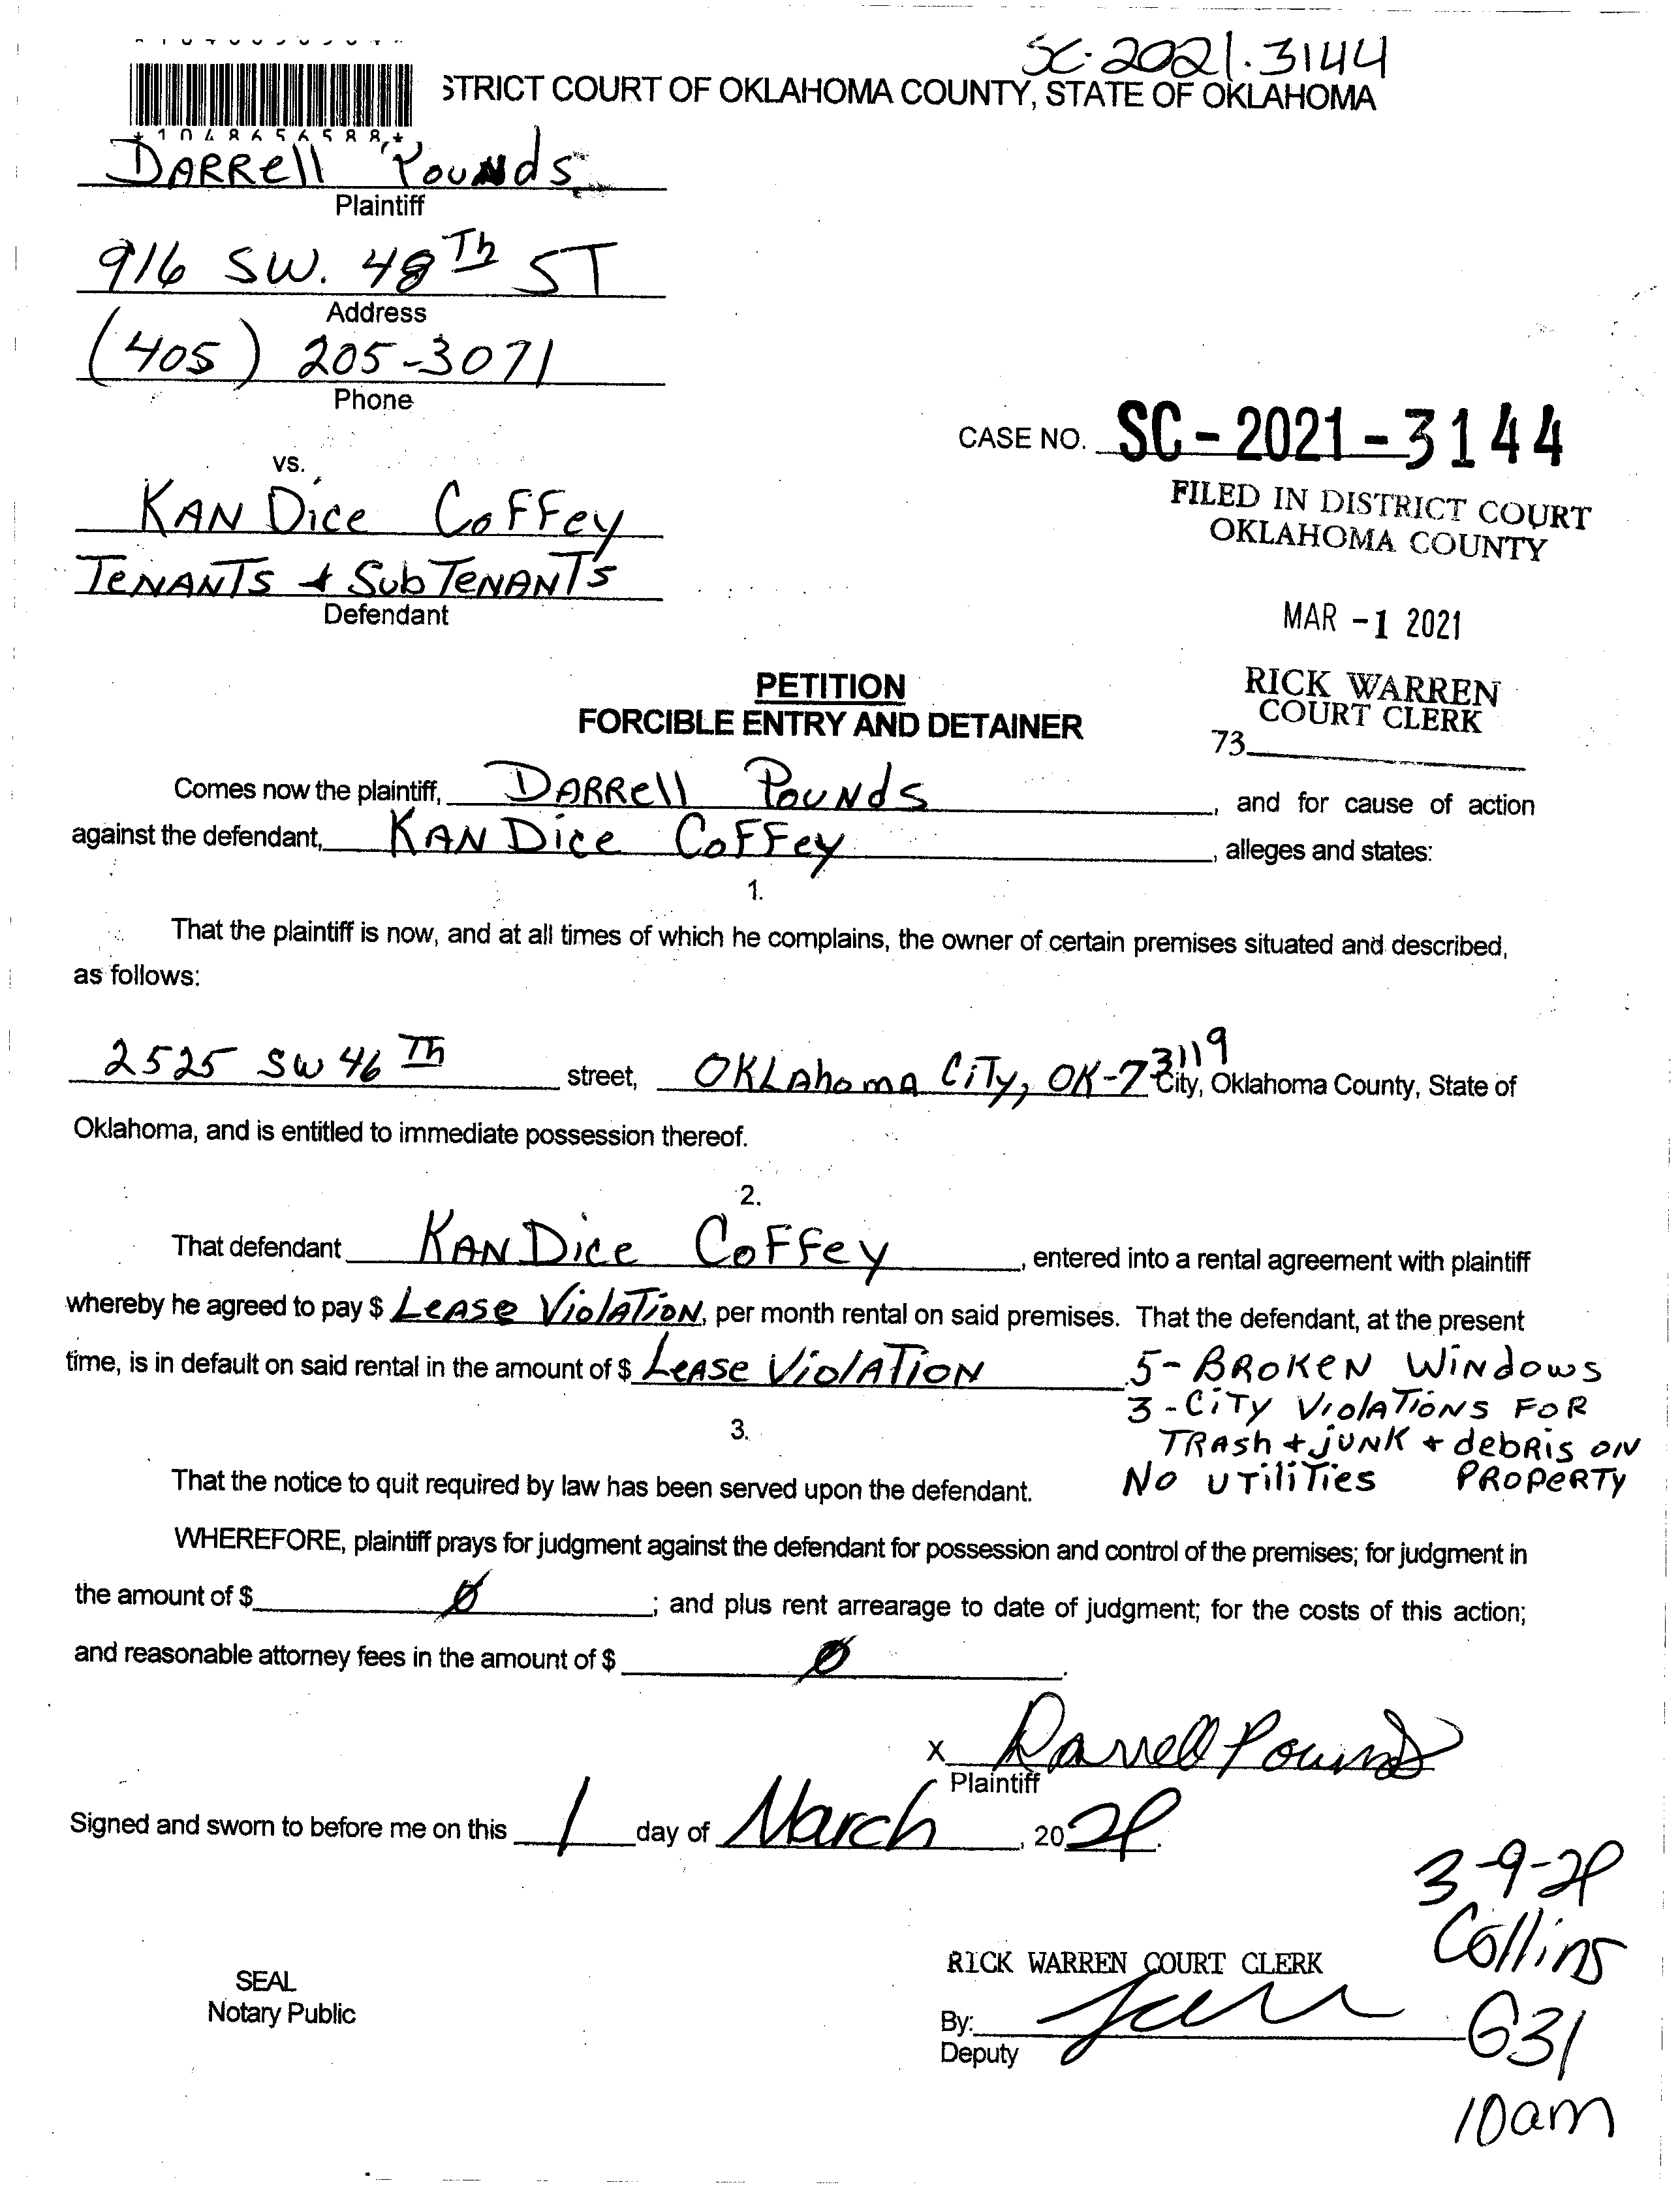 SC-2021-3144
STRICT COURT OF OKLAHOMA COUNTY, STATE OF OKLAHOMA
*1048656588*
DARRell Pounds
Plaintiff
916 SW. 48Th ST
Address
(405) 205-3071
Phone
CASE NO. SC-2021-3144
vs.
FILED IN DISTRICT COURT
OKLAHOMA COUNTY
KANDice CoFFey
TeNANTs + SubTeNANTs
Defendant
MAR -1 2021
RICK WARREN
COURT CLERK
73
PETITION
FORCIBLE ENTRY AND DETAINER
Comes now the plaintiff, DARRell PouNds, and for cause of action
against the defendant, KANDice CoFFey, alleges and states:
1.
That the plaintiff is now, and at all times of which he complains, the owner of certain premises situated and described,
as follows:
2525 SW 46Th street, OKLAhomA CiTy, OK-73119 City, Oklahoma County, State of
Oklahoma, and is entitled to immediate possession thereof.
2.
That defendant KANDice CoFFey, entered into a rental agreement with plaintiff
whereby he agreed to pay $ LeAse ViolATioN, per month rental on said premises. That the defendant, at the present
time, is in default on said rental in the amount of $ LeAse ViolATioN. 5-BRoKeN WiNdows
3-CiTy ViolATioNs FoR
TRAsh + juNK + debRis oN
PRopeRTy
No uTiliTies
3.
That the notice to quit required by law has been served upon the defendant.
WHEREFORE, plaintiff prays for judgment against the defendant for possession and control of the premises; for judgment in
the amount of $ Ø; and plus rent arrearage to date of judgment; for the costs of this action;
and reasonable attorney fees in the amount of $ Ø.
X Darrell Pounds
Plaintiff
Signed and sworn to before me on this 1 day of March, 2021.
3-9-21
Collins
631
10am
SEAL
Notary Public
RICK WARREN COURT CLERK
By:
Deputy